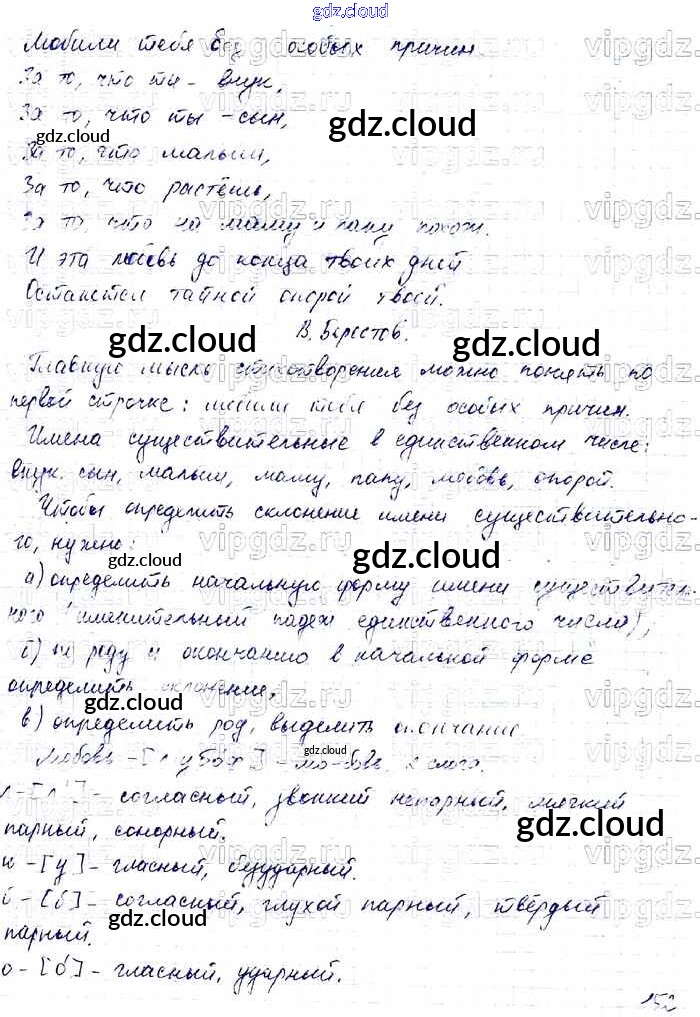 gdz.cloud
Любили тебя без особых причин
За то, что ты - внук,
За то, что ты - сын,
За то, что малыш,
За то, что растёшь,
За то, что на маму и папу похож.
И эта любовь до конца твоих дней
Останется тайной опорой твоей.
В. Берестов.
Главную мысль стихотворения можно понять по
первой строчке: любили тебя без особых причин.
Имена существительные в единственном числе:
внук, сын, малыш, маму, папу, любовь, опорой.
Чтобы определить склонение имени существительно-
го, нужно:
а) определить начальную форму имени существитель-
ного (именительный падеж единственного числа);
б) по роду и окончанию в начальной форме
определить склонение,
в) определить род, выделить окончание
Любовь - - лю-бовь, 2 слога.
л - [л'] - согласный, звонкий непарный, мягкий
парный, сонорный.
ю - [у] - гласный, безударный.
б - [б] - согласный, глухой парный, твёрдый
парный.
о - [о́] - гласный, ударный.
152